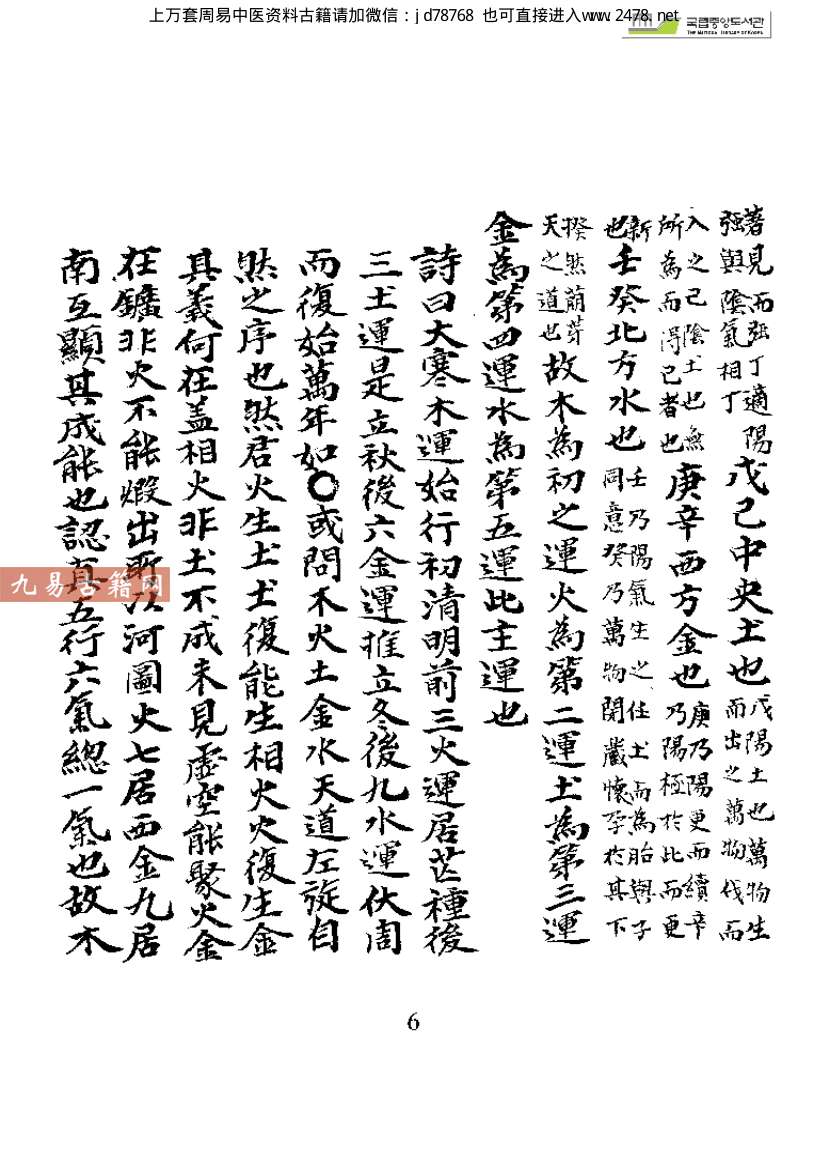 上万套周易中医资料古籍请加微信：jd78768 也可直接进入www.2478.net
국립중앙도서관
THE NATIONAL LIBRARY OF KOREA
著見而强丁適陽
强與陰氣相丁
戊己中央土也
戊陽土也萬物生
而出之萬物伐而
入之己陰土也無
所為而得己者也
庚辛西方金也
庚乃陽更而續辛
乃陽極於此而更
新
也
壬癸北方水也
壬乃陽氣生之任土而為胎與子
同意癸乃萬物閉藏懷孕於其下
揆然萠芽
天之道也
故木為初之運火為第二運土為第三運
金為第四運水為第五運此主運也
詩曰大寒木運始行初清明前三火運居芒種後
三土運是立秋後六金運推立冬後九水運伏周
而復始萬年如〇或問木火土金水天道左旋自
然之序也然君火生土土復能生相火火復生金
其義何在盖相火非土不成未見虛空能聚火金
在鑛非火不能煆出所以河圖火七居西金九居
南互顯其成能也認真五行六氣總一氣也故木
九易古籍网
6